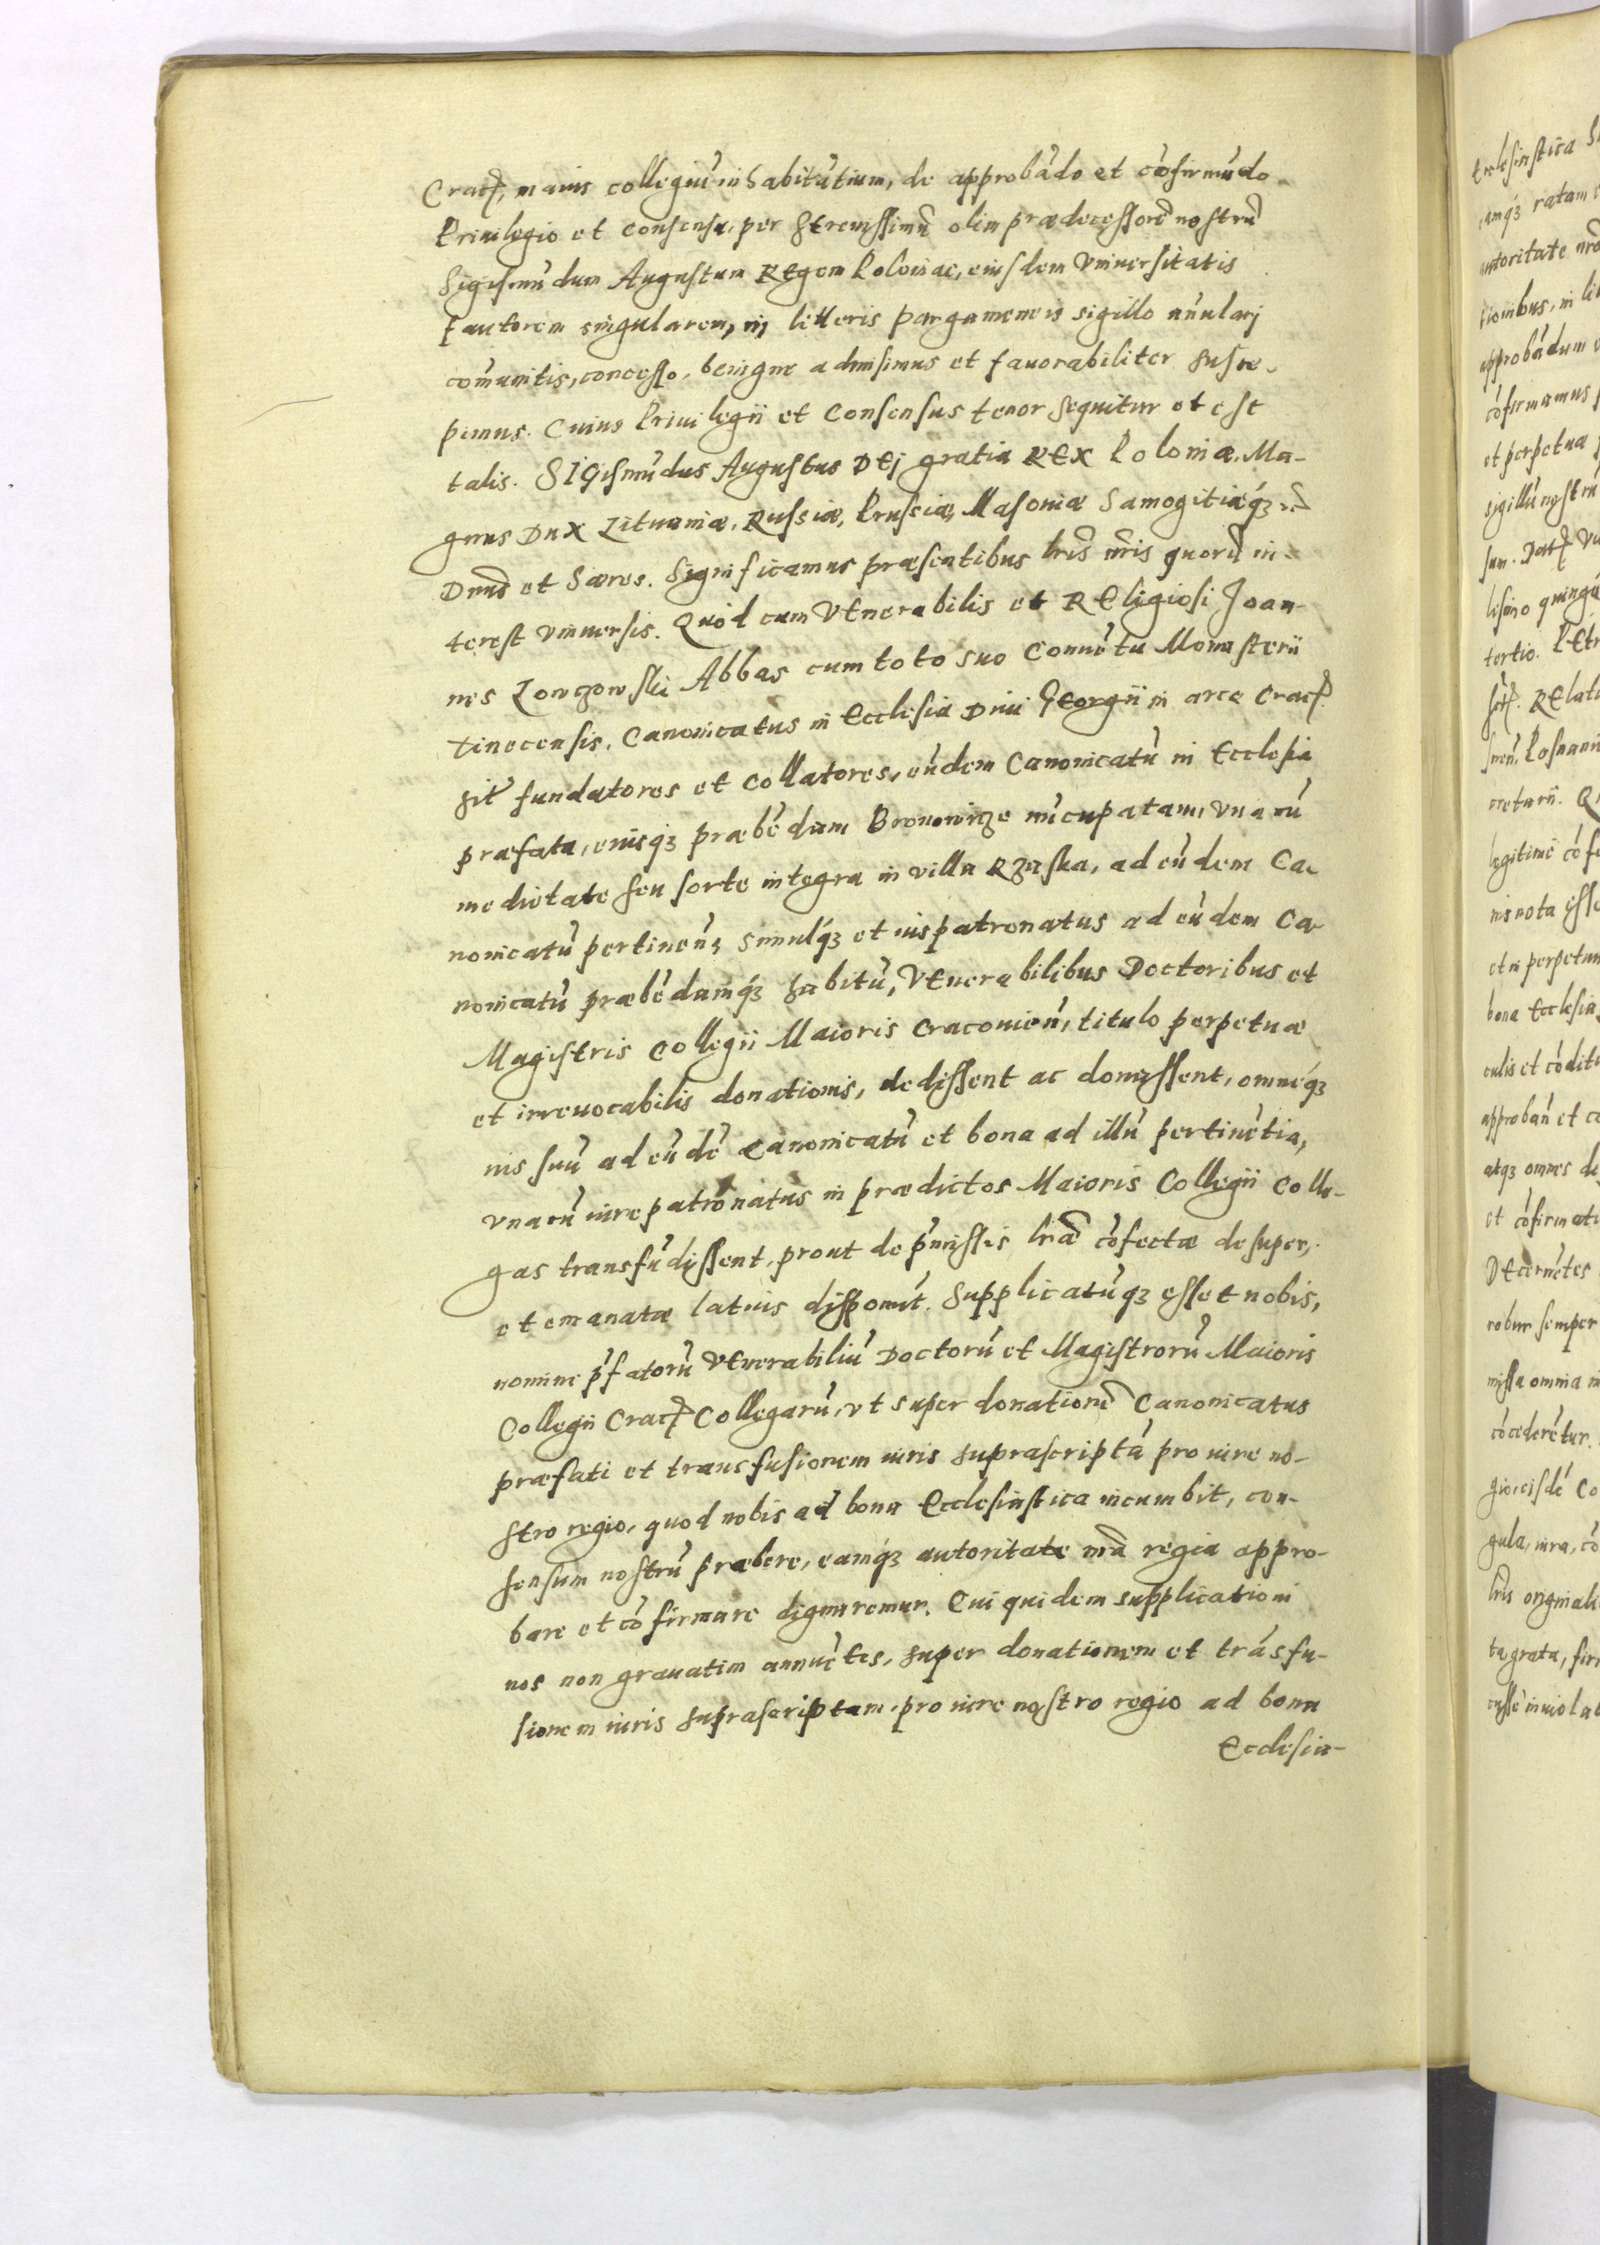 Crac., maius collegiū inhabitātium, de approbādo et cōfirmādo
Priuilegio et consensu, per Serenissimū olim prædecessorē nostrū
Sigismūdum Augustum REgem Poloniae, eiusdem Vniuersitatis
fautorem singularem, in litteris pargameneis sigillo anularj
cōmunitis, concesso, benigne admisimus et fauorabiliter susce-
pimus. Cuius Priuilegii et Consensus tenor sequitur et est
talis. SIGismūdus Augustus DEj gratia REX Poloniæ. Ma-
gnus DuX Lituaniæ, Russiæ, Prussiæ, Masoniæ Samogitiæq́ꝫ etc̄
Dnūs et Hæres. Significamus præsentibus lrīs nrīs quorū in-
terest vniuersis. Quòd cum VEnerabilis et REligiosi Joan-
nes Lowczowski Abbas cum toto suo Conuētu Monasterii
Tinecensis, Canonicatus in Ecclesia Diui GEorgii in arce Crac.
sīt fundatores et collatores, eūdem Canonicatū in Ecclesia
præfata, eiusq́ꝫ præbēdam Bronowicze nūcupatam, vnacū
medietate seu sorte integra in villa RZaska, ad eūdem Ca-
nonicatū pertineñ, simulq́ꝫ et iuspatronatus ad eūdem Ca-
nonicatū præbēdamq́ꝫ habitū, VEnerabilibus Doctoribus et
Magistris Collegii Maioris Cracouieñ, titulo perpetuæ
et irreuocabilis donationis, dedissent ac donassent, omneq́ꝫ
ius suū ad eūdē Canonicatū et bona ad illū pertinētia,
vnacū iure patronatus in prædictos Maioris Collegii Colle-
gas transfudissent, prout de p̄missis lrāe cōfectæ desuper,
et emanatæ latius disponūt. Supplicatūq́ꝫ esset nobis,
nomine p̄fatorū VEnerabiliū Doctorū et Magistrorū Maioris
Collegii Crac. Collegarū, vt super donationē Canonicatus
præfati et transfusionem iuris suprascriptā pro iure no-
stro regio, quod nobis ad bona Ecclesiastica incumbit, con-
sensum nostrū præbere, eamq́ꝫ autoritate nrā regia appro-
bare et cōfirmare dignaremur. Cui quidem supplicationi
nos non grauatim annuētes, super donationem et trāsfu-
sionem iuris suprascriptam, pro iure nostro regio ad bona
Ecclesia-